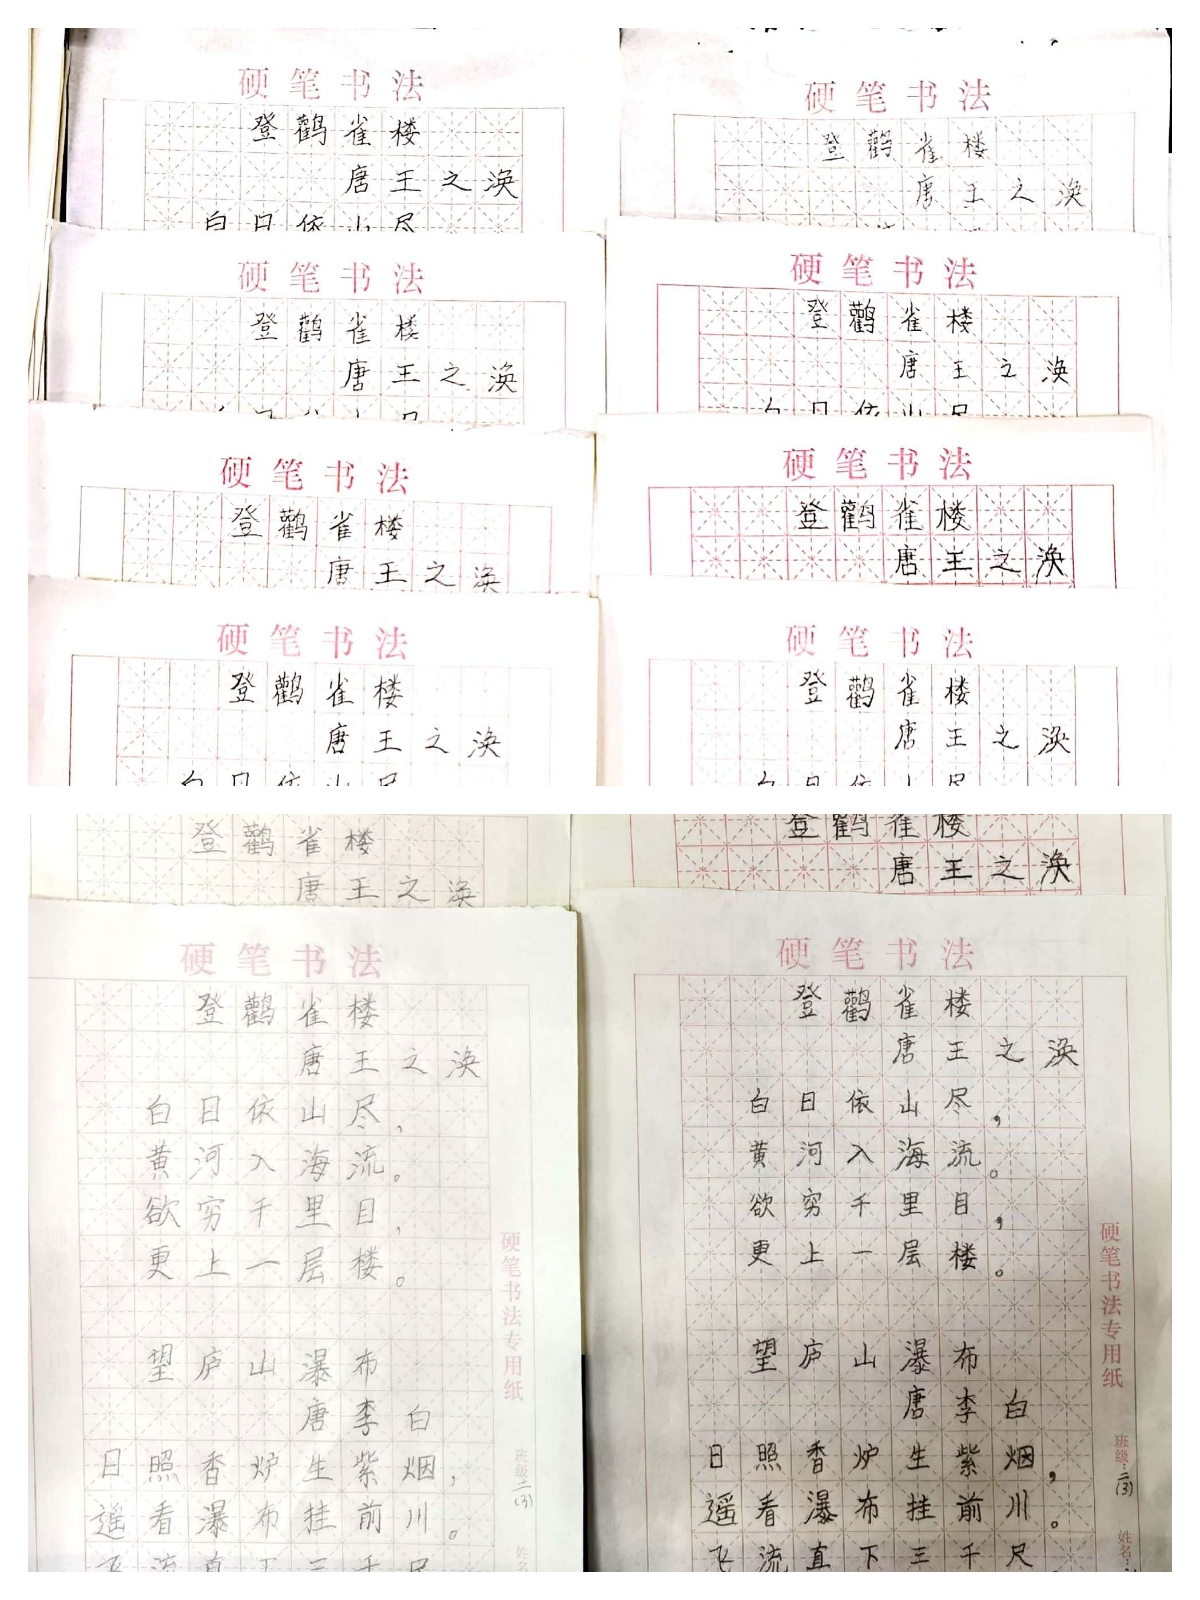 硬笔书法
登鹳雀楼
唐 王之涣
白日依山尽
硬笔书法
登鹳雀楼
唐 王之涣
硬笔书法
登鹳雀楼
唐 王之涣
硬笔书法
登鹳雀楼
唐 王之涣
白日依山尽
硬笔书法
登鹳雀楼
唐 王之涣
硬笔书法
登鹳雀楼
唐 王之涣
白日依山尽
硬笔书法
登鹳雀楼
唐 王之涣
硬笔书法
登鹳雀楼
唐 王之涣
白日依山尽
登鹳雀楼
唐 王之涣
硬笔书法
登鹳雀楼
唐 王之涣
白日依山尽,
黄河入海流。
欲穷千里目,
更上一层楼。
望庐山瀑布
唐 李白
日照香炉生紫烟,
遥看瀑布挂前川。
飞流直下三千尺
硬笔书法专用纸
班级:二(3)
姓名
登鹳雀楼
唐 王之涣
硬笔书法
登鹳雀楼
唐 王之涣
白日依山尽,
黄河入海流。
欲穷千里目,
更上一层楼。
望庐山瀑布
唐 李白
日照香炉生紫烟,
遥看瀑布挂前川。
飞流直下三千尺
硬笔书法专用纸
班级:二(3)
姓名: